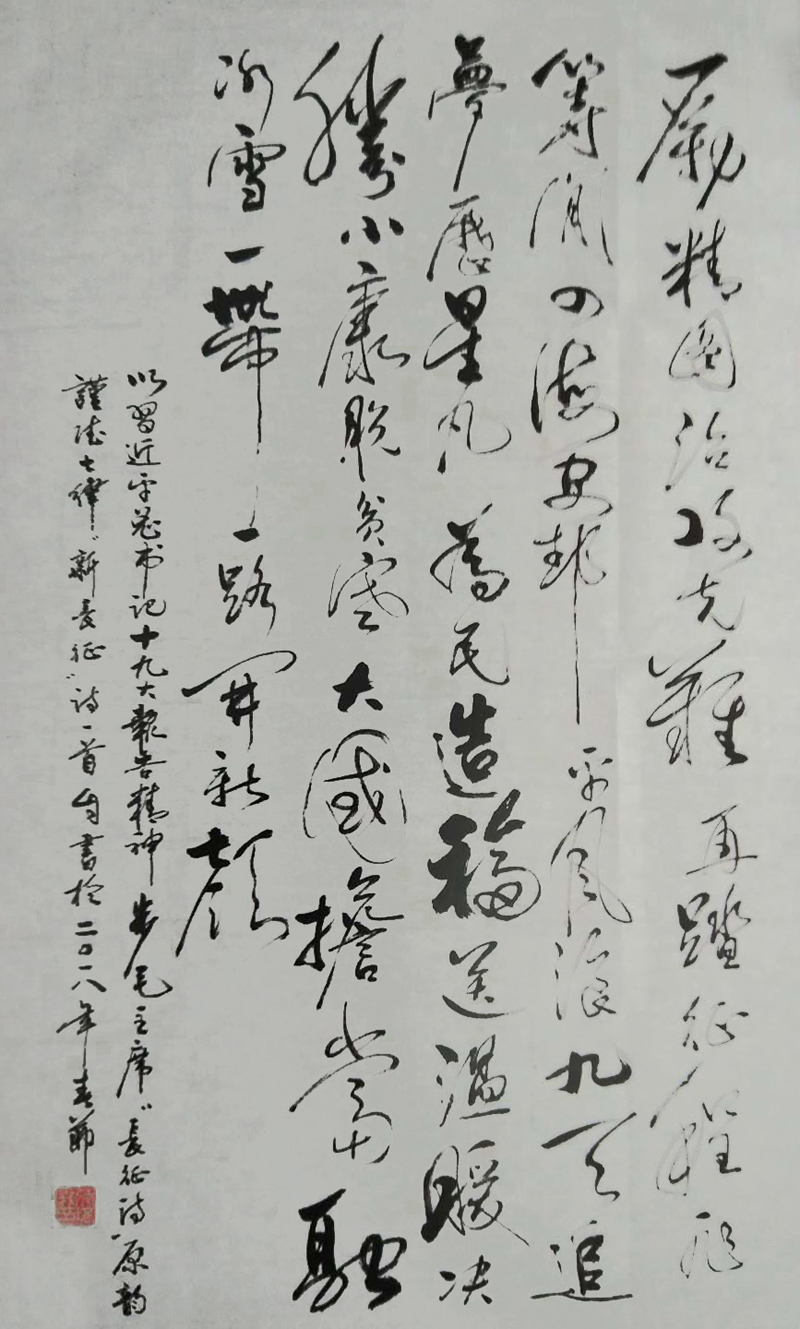 勵精圖治攻克難再踏征程非
等閒四海安邦平風浪九天追
夢歷星丸為民造福送溫暖決
勝小康脫貧寒大國擔當融
冰雪一帶一路開新顏
以習近平总书记十九大報告精神步毛主席"長征詩"原韵
謹七律"新長征"詩一首自書於二〇一八年春節